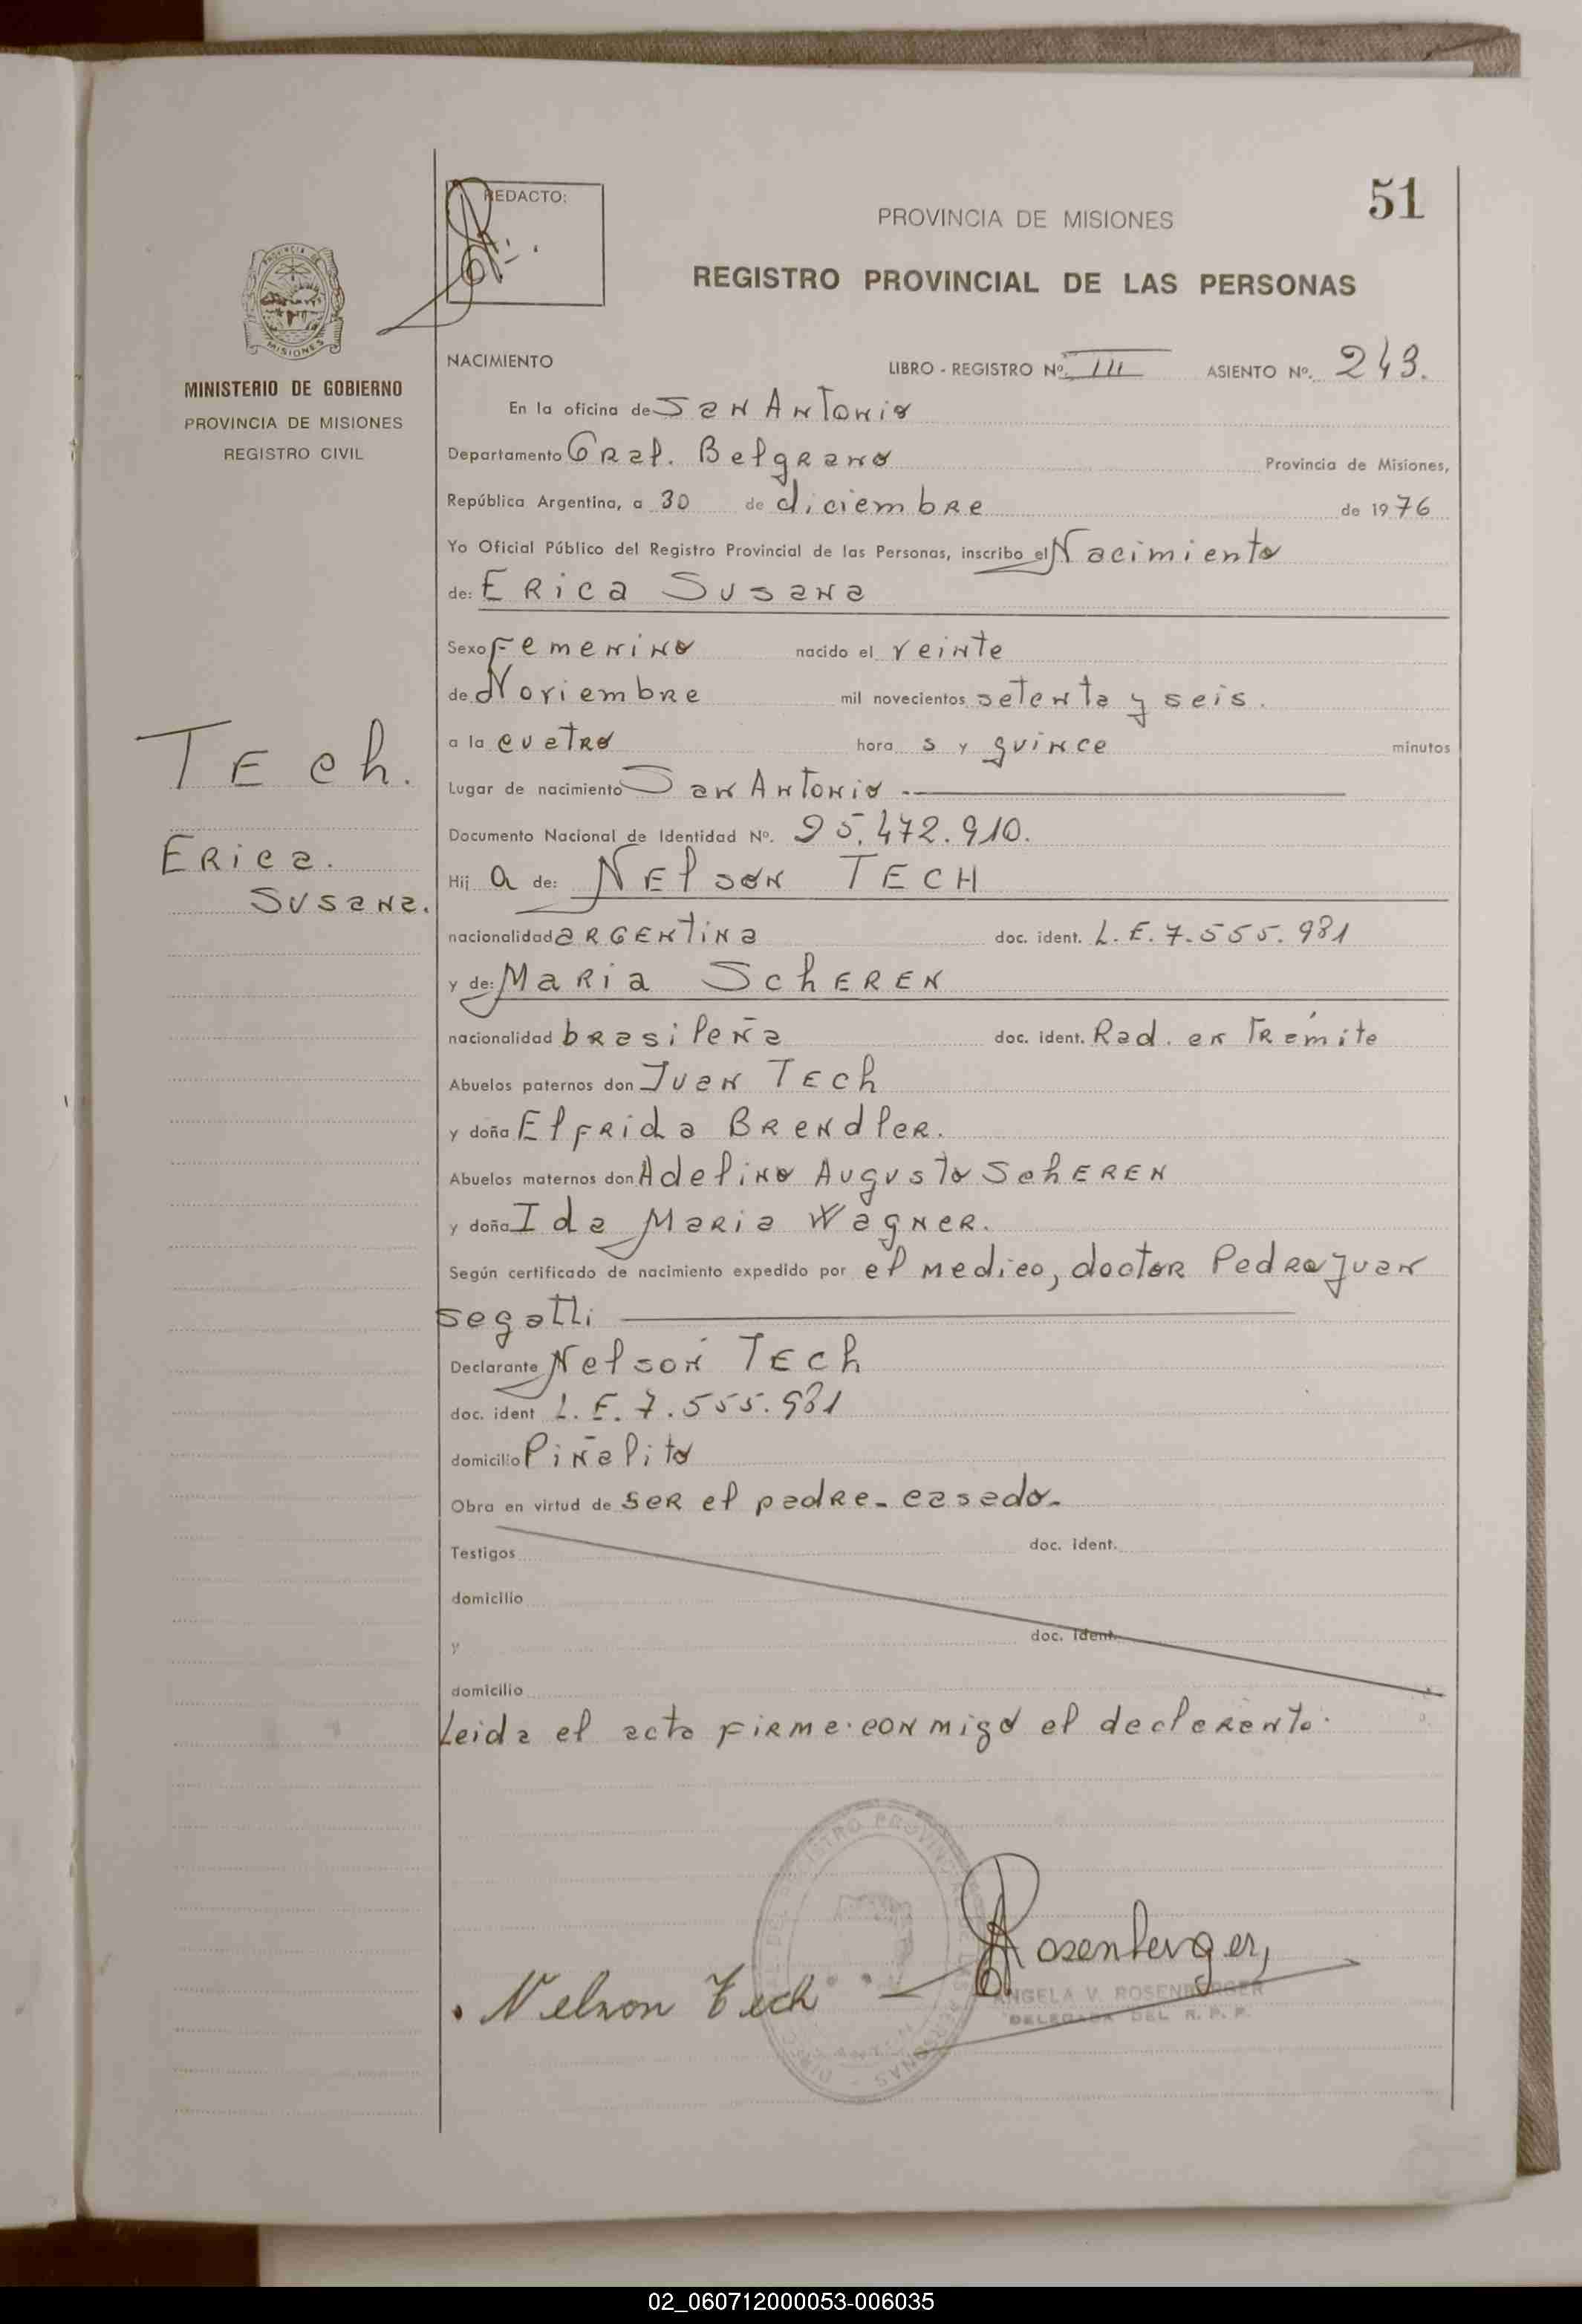 51
REDACTO:
PROVINCIA DE MISIONES
REGISTRO PROVINCIAL DE LAS PERSONAS
MISIONES
MINISTERIO DE GOBIERNO
PROVINCIA DE MISIONES
REGISTRO CIVIL
NACIMIENTO LIBRO - REGISTRO Nº. III ASIENTO Nº. 243.
En la oficina de San Antonio
Departamento Gral. Belgrano Provincia de Misiones,
República Argentina, a 30 de diciembre de 1976
Yo Oficial Público del Registro Provincial de las Personas, inscribo el Nacimiento
de: Erica Susana
Sexo Femenino nacido el veinte
de Noviembre mil novecientos setenta y seis.
a la cuatro hora s y quince minutos
Lugar de nacimiento San Antonio
Tech.
Erica.
Susana.
Documento Nacional de Identidad Nº. 25.472.910.
Hij a de: Nelson TECH
nacionalidad argentina doc. ident. L.E. 7.555.981
y de: Maria Scheren
nacionalidad brasileña doc. ident. Rad. en Trámite
Abuelos paternos don Juan Tech
y doña Elfrida Brendler.
Abuelos maternos don Adelino Augusto Scheren
y doña Ida Maria Wagner.
Según certificado de nacimiento expedido por el medico, doctor Pedro Juan
segatti
Declarante Nelson Tech
doc. ident L.E. 7.555.981
domicilio Piñalito
Obra en virtud de ser el padre-casado-
Testigos doc. ident.
domicilio
y doc. ident.
domicilio
Leida el acta firma conmigo el declarante.
Nelson Tech
Rosenberger
ANGELA V. ROSENBERGER
DELEGADA DEL R. P. P.
02_060712000053-006035